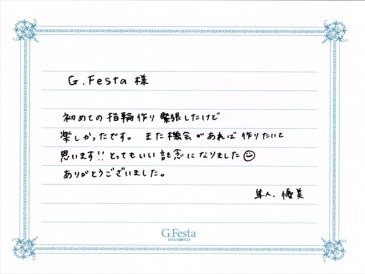 G.Festa 様
初めての指輪作り緊張したけど
楽しかったです。また機会があれば作りたいと
思います!!とってもいい記念になりました☺
ありがとうございました。
隼人、優美
G.Festa
DIAMOND